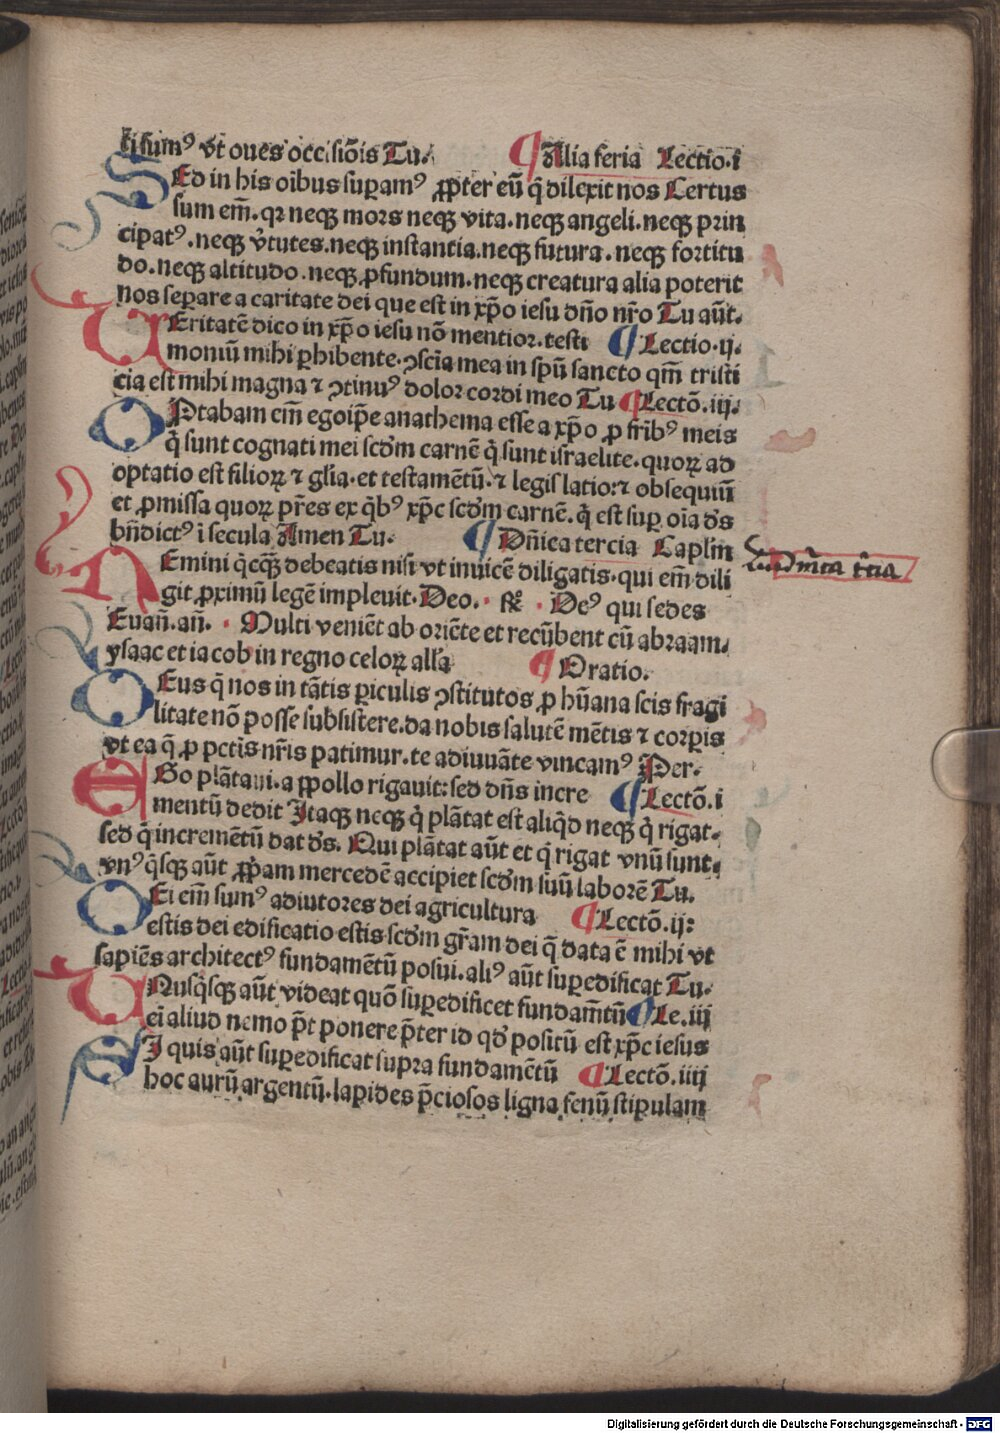 sumꝰ vt oues occisiōis Tu. ¶ Alia feria Lectio.i
SEd in his oībus suꝑamꝰ ꝓpter eū q̄ dilexit nos Certus
sum em̄. qꝛ neqꝫ mors neqꝫ vita.neqꝫ angeli.neqꝫ prin
cipatꝰ.neqꝫ v̄tutes.neqꝫ instantia.neqꝫ futura.neqꝫ fortitu
do.neqꝫ altitudo.neqꝫ ꝓfundum.neqꝫ creatura alia poterit
nos seꝑare a caritate dei que est in xp̄o iesu dn̄o nr̄o Tu aūt.
VEritatē dico in xp̄o iesu nō mentior.testi ¶ Lectio.ij.
moniū mihi ꝑhibente.ꝯscīa mea in sp̄ū sancto qm̄ tristi
cia est mihi magna ⁊ ꝯtinuꝰ dolor cordi meo Tu ¶ Lectō.iij.
OPtabam em̄ ego ip̄e anathema esse a xp̄o ꝓ fr̄ibꝰ meis
q̄ sunt cognati mei scd̄m carnē q̄ sunt israelite.quoꝝ ad
optatio est filioꝝ ⁊ gl̄ia.et testamētū.⁊ legislatio:⁊ obsequiū
et ꝓmissa quoꝝ pr̄es ex q̄bꝰ xp̄c scd̄m carnē.q̄ est suꝑ oīa ds̄
bn̄dictꝰ ī secula Amen Tu. ¶ Dn̄ica tercia Capl̄m
NEmini q̄cqꝫ debeatis nisi vt inuicē diligatis.qui em̄ dili
git ꝓximū legē impleuit.Deo. ℟ . Deꝰ qui sedes
Euan̄.an̄. Multi veniēt ab oriēte et recūbent cū abraam.
ysaac et iacob in regno celoꝝ all̄a ¶ Oratio.
DEus q̄ nos in tātis ꝑiculis ꝯstitutos ꝓ hūana scis fragi
litate nō posse subsistere.da nobis salutē mētis ⁊ corꝑis
vt ea q̄ ꝓ pctīs nr̄is patimur.te adiuuāte vincamꝰ Per.
EGo plātaui.appollo rigauit:sed dn̄s incre ¶ Lectō.i
mentū dedit Itaqꝫ neqꝫ q̄ plātat est aliq̄d neqꝫ q̄ rigat.
sed q̄ incremētū dat ds̄. Qui plātat aūt et q̄ rigat vnū sunt.
vnꝰq̄sqꝫ aūt ꝓpͥam mercedē accipiet scd̄m suū laborē Tu.
DEi em̄ sumꝰ adiutores dei agricultura ¶ Lectō.ij:
estis dei edificatio estis scd̄m gr̄am dei q̄ data ē mihi vt
sapiēs architectꝰ fundamētū posui.aliꝰ aūt suꝑedificat Tu.
VNusq̄sqꝫ aūt videat quō suꝑedificet fundam̄tū ¶ Le.iij
ei aliud nemo p̄t ponere p̄ter id qd̄ positū est xp̄c iesus
SI quis aūt suꝑedificat supra fundamētū ¶ Lectō.iiij
hoc aurū argentū.lapides p̄ciosos ligna fenū stipulam
Dn̄ica tͨia
Digitalisierung gefördert durch die Deutsche Forschungsgemeinschaft - DFG